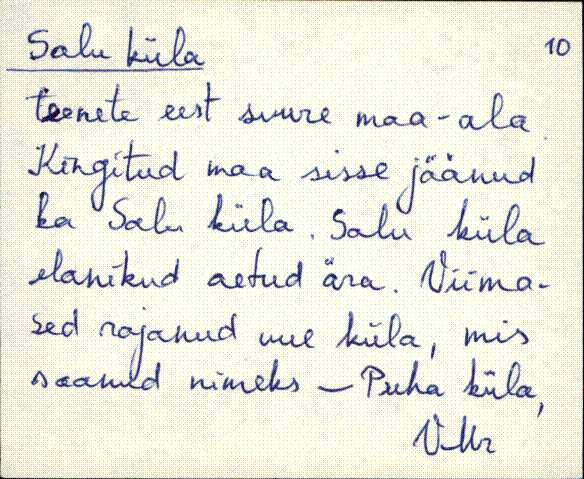 Salu küla 10
teenete eest suure maa-ala.
Kingitud maa sisse jäänud
ka Salu küla. Salu küla
elanikud aetud ära. Viima-
sed rajanud uue küla, mis
saanud nimeks — Puha küla,
VMr